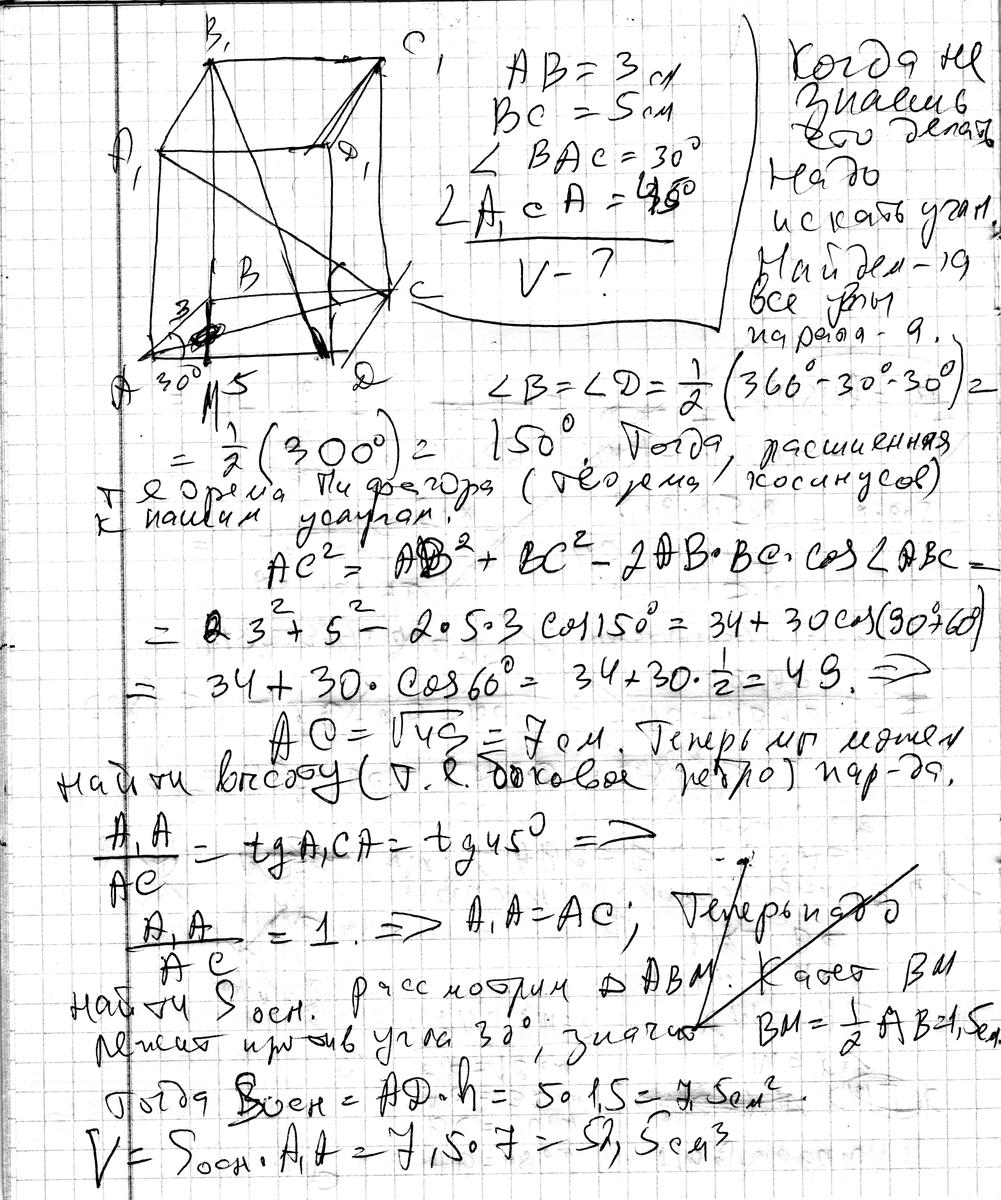 B₁ C₁
A₁ D₁
B C
3
A 30° M 5 D
AB = 3 см
BC = 5 см
∠ BAC = 30°
∠ A₁CA = 45°
V - ?
Когда не
знаешь
что делать
надо
искать углы.
Найдем
все углы
∠B = ∠D = 1/2 (360° - 30° - 30°) =
= 1/2 (300°) = 150°. Тогда, расширенная
теорема Пифагора (теорема косинусов)
к нашим услугам.
AC² = AB² + BC² - 2AB·BC·cos∠ABC =
= 3² + 5² - 2·5·3 cos150° = 34 + 30cos(90°+60°)
= 34 + 30·cos60° = 34 + 30·1/2 = 49. =>
AC = √49 = 7 см. Теперь мы можем
найти высоту (т.е. боковое ребро) пар-да.
A₁A/AC = tgA₁CA = tg45° =>
A₁A/AC = 1. => A₁A = AC; Теперь надо
найти Sосн. Рассмотрим △ ABM. Катет BM
лежит против угла 30°, значит BM = 1/2 AB = 1,5см.
тогда Sосн = AD·h = 5·1,5 = 7,5см².
V = Sосн·A₁A = 7,5·7 = 52,5см³